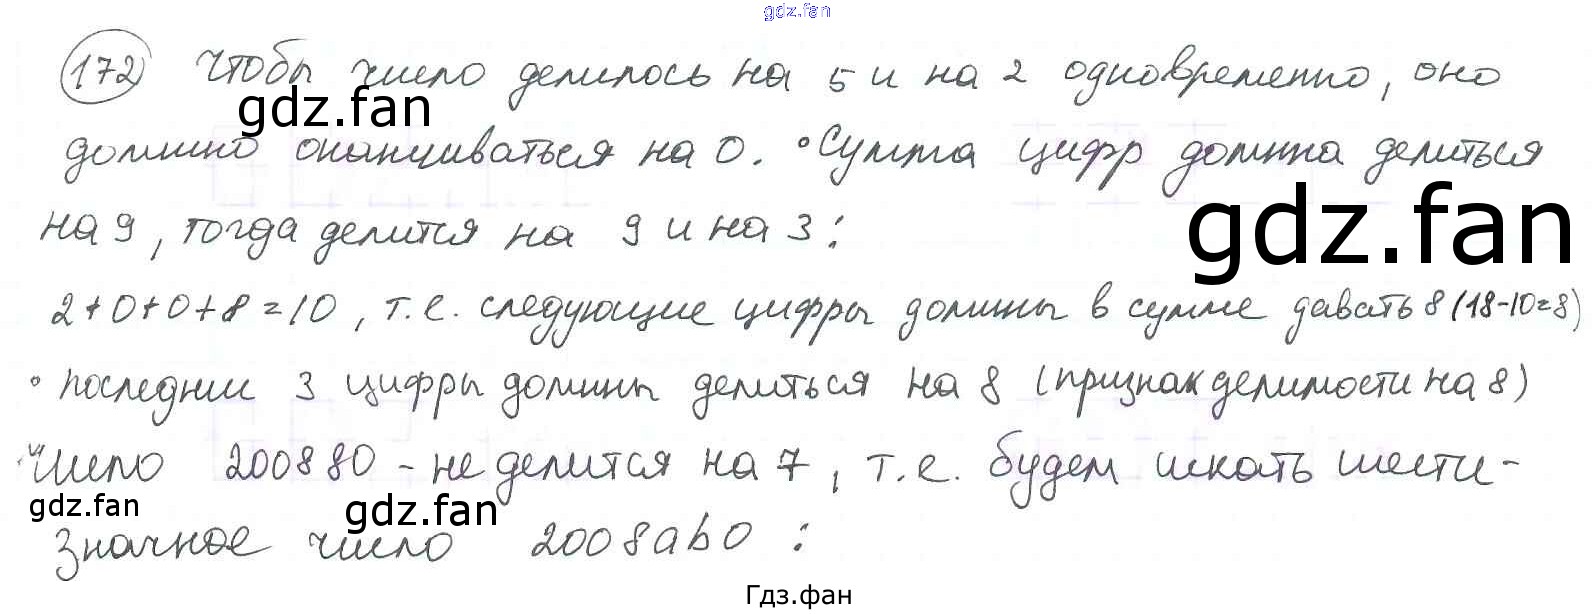 gdz.fan
172 Чтобы число делилось на 5 и на 2 одновременно, оно
gdz.fan
должно оканчиваться на 0. ° Сумма цифр должна делиться
на 9, тогда делится на 9 и на 3:
gdz.fan
2+0+0+8=10, т.е. следующие цифры должны в сумме давать 8 (18-10=8)
° последнии 3 цифры должны делиться на 8 (признак делимости на 8)
Число 200880 - не делится на 7, т.е. будем искать шести-
gdz.fan
gdz.fan
значное число 2008ab0 :
Гдз.фан